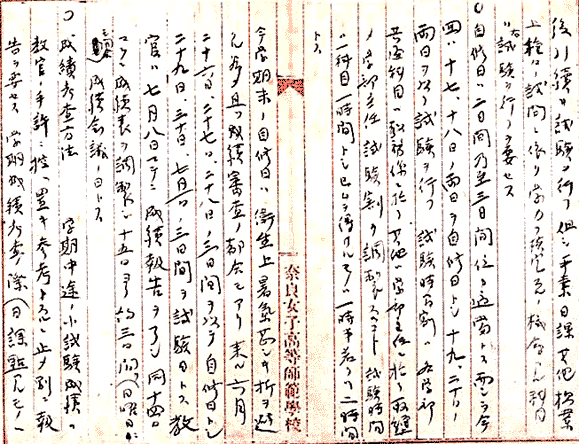 後引續キ試験ヲ行フ 但シ平素日課其他
上ノ試問ニ依リ学力ヲ
試験ヲ行フヲ要セス
自修日ハ二日間乃至三日間位ヲ適當トス 而シテ今
回ハ十七、十八ノ両日ヲ自修日トシ十九、二十ノ
両日ヲ以テ試験ヲ行フ 試験時間割ハ各学部
共通科目ハ教務係ニ於テ其他ハ学部主任ニ於テ
学部主任試験割ヲ調製スルコト 試験時間
ハ一科目一時間トシ已ムヲ得サルモノハ一時半若クハ二時間
トス
今学期末ノ自修日ハ衛生上暑気甚シキ折ヲ避
ケ且ツ成績審査ノ都合モアリ来ル六月
二十六日、二十七日、二十八日ノ三日間ヲ以テ自修日トシ
二十九日、三十日、七月一日ノ三日間ヲ試験日トス、教
官ハ七月八日マテニ成績報告ヲ了シ同十四日
マテニ成績表ヲ調製シ十五日ヨリ約三日間(日曜日
成績会議ノ日トス
成績考査方法 学期中途ノ小試験成績ハ
教官ノ手許ニ控ヘ置キ参考トスルニ止メ別ニ報
告ヲ要セス 学期成績考査ノ際(日課點
奈良女子高等師範學校